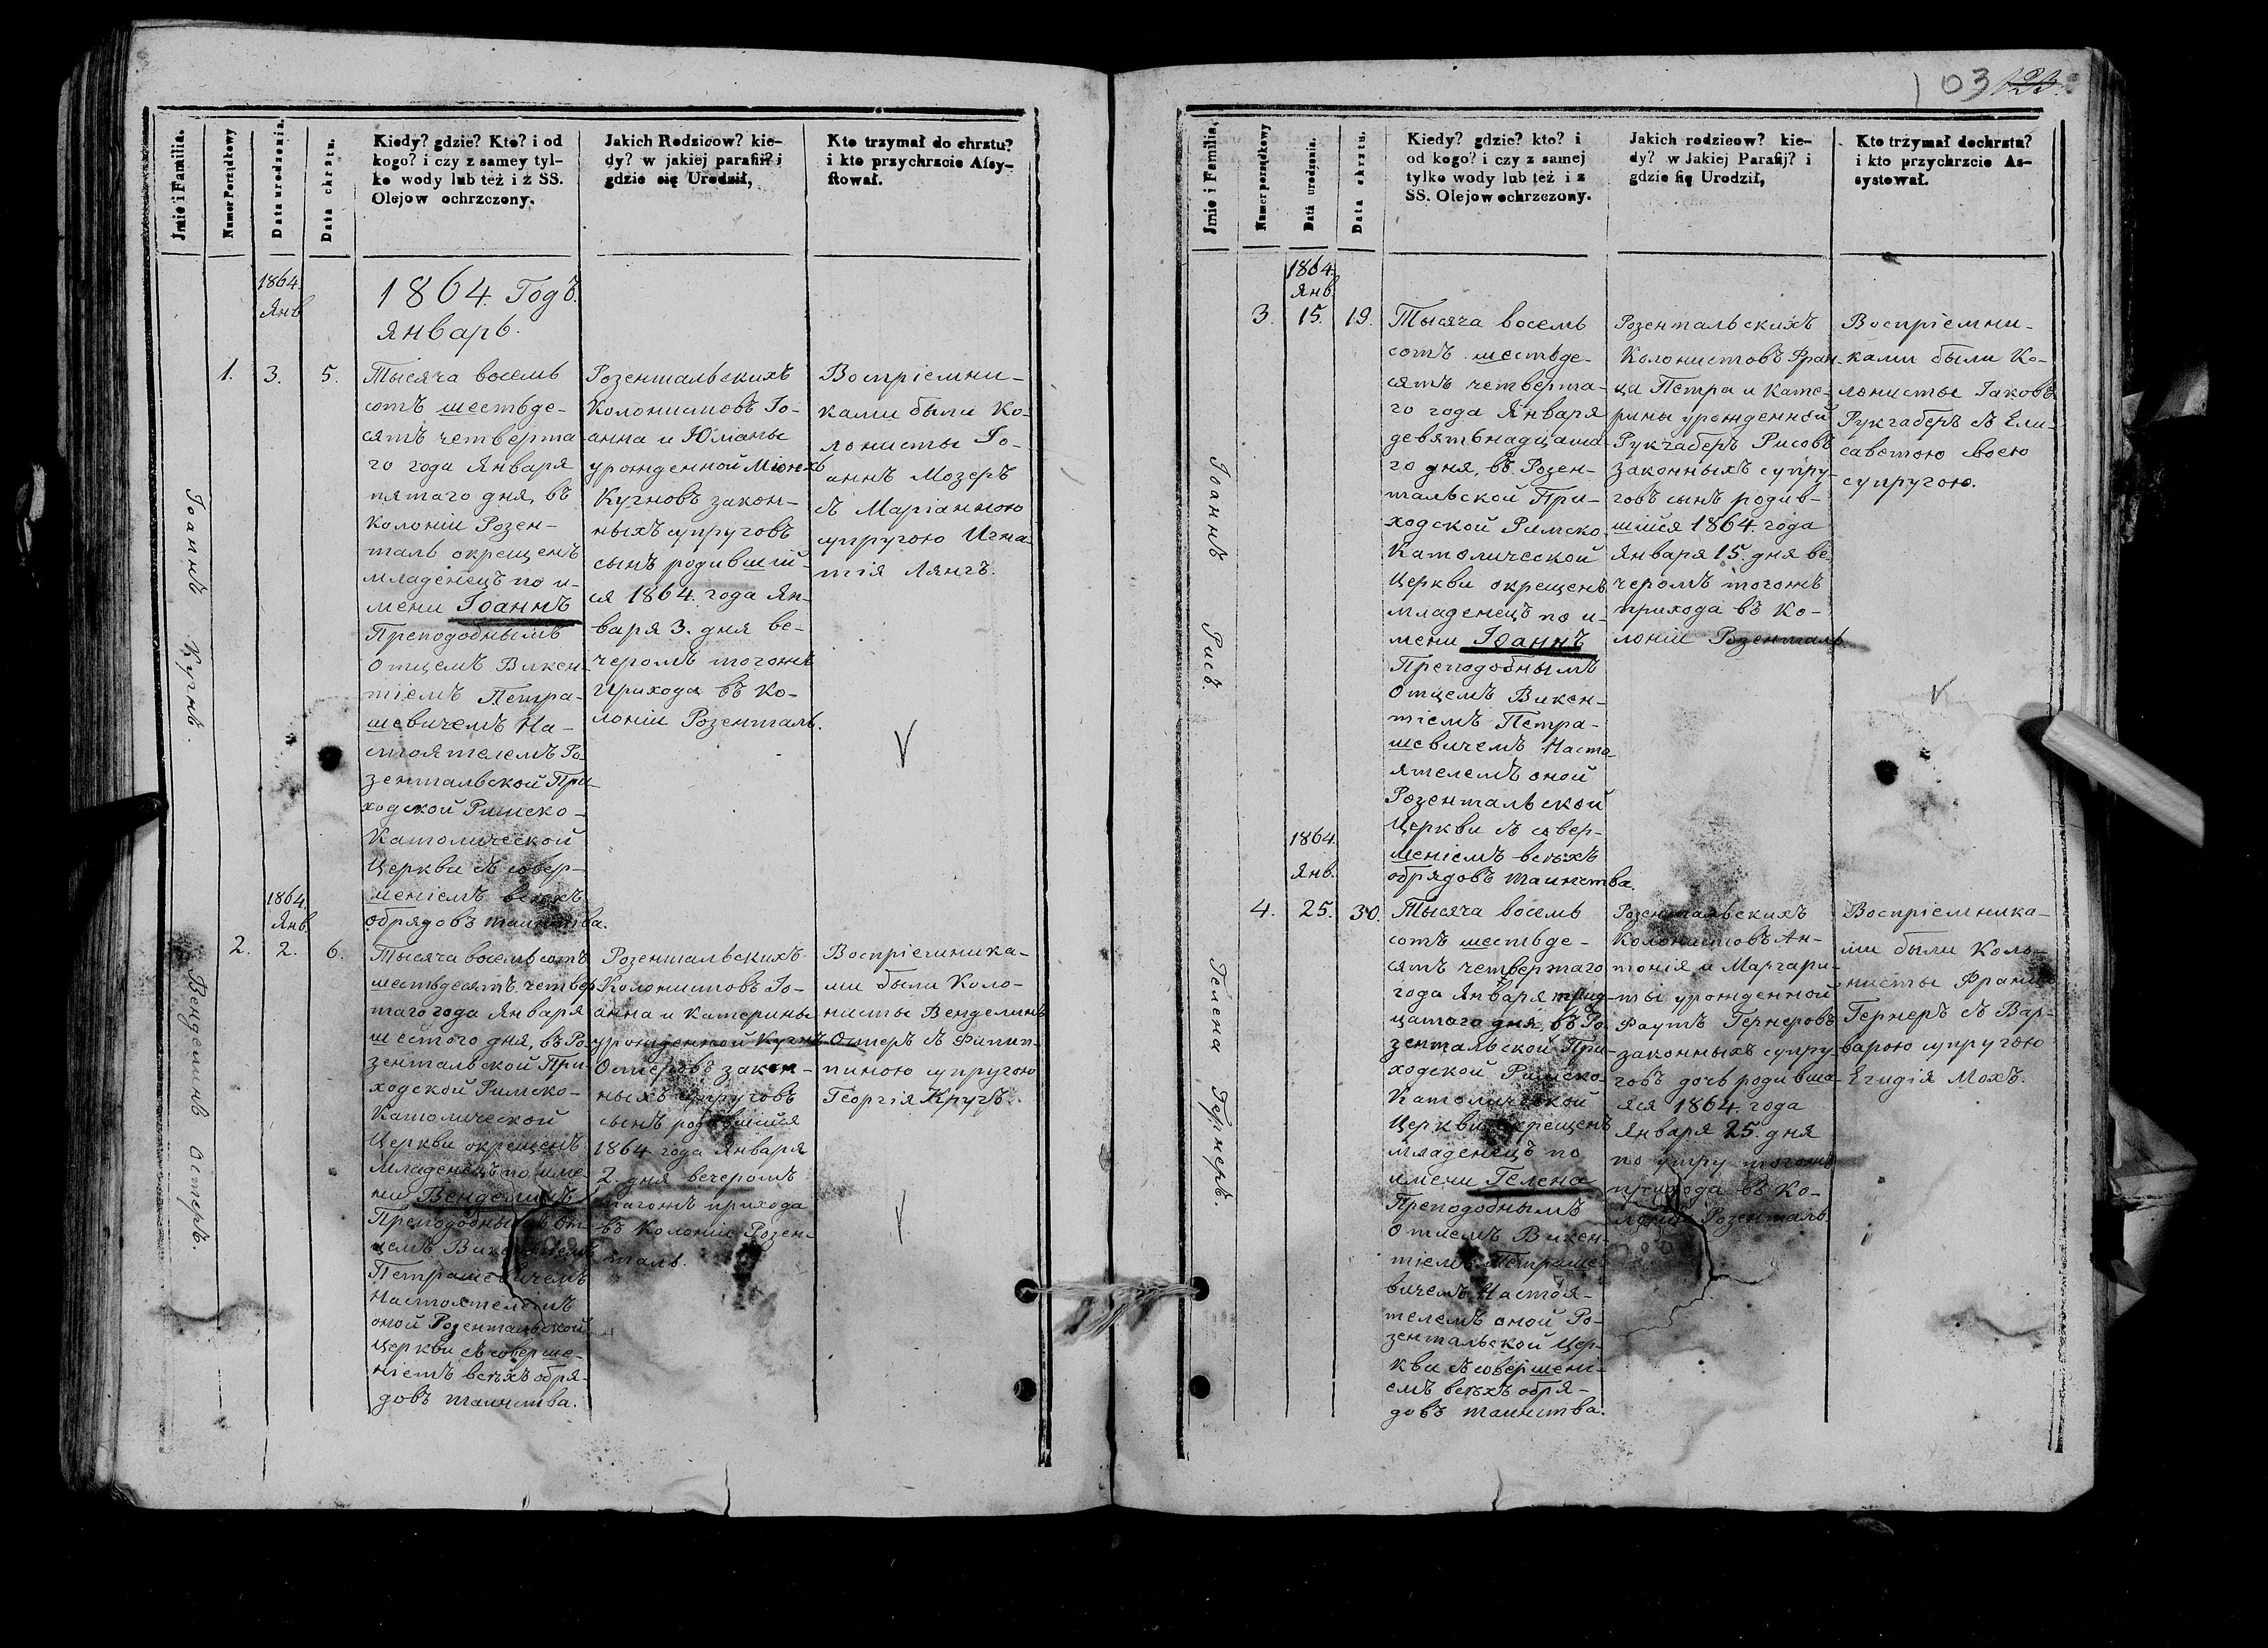 Jmie i Familia.
Numer Porządkowy
Data urodzenia.
Data chrztu.
Kiedy? gdzie? Kto? i od
kogo? i czy z samey tyl-
ko wody lub też i z SS.
Olejow ochrzczony.
Jakich Rodzicow? kie-
dy? w jakiej parafii? i
gdzie się Urodził,
Kto trzymał do chrztu?
i kto przychrzcie Assy-
stował.
1864.
Янв
1864. Годъ.
Январь.
Іоаннъ Кугнъ.
1. 3. 5.
Тысяча восемь
сотъ шестьде-
сятъ четверта
го года Января
пятаго дня, въ
Колоніи Розен-
таль окрещенъ
младенецъ по и-
мени Іоаннъ
Преподобнымъ
Отцемъ Викен-
тіемъ Петра-
шевичемъ На-
стоятелемъ Ро
зентальской При
ходской Римско-
Католической
Церкви съ совер-
шеніемъ всѣхъ
обрядовъ таинства.
Розентальскихъ
Колонистовъ Іо-
анна и Юліаны
урожденной Мюнхъ
Кугновъ закон-
ныхъ супруговъ
сынъ родившій-
ся 1864. года Ян-
варя 3. дня ве-
черомъ тогожъ
Прихода въ Ко-
лоніи Розенталь.
Воспріемни-
ками были Ко-
лонисты Іо-
аннъ Мозеръ
съ Маріанною
супругою Игна-
тія Лянгъ.
1864.
Янв.
Венделинъ Остеръ.
2. 2. 6.
Тысяча восемьсотъ
шестьдесятъ четвер
таго года Января
шестого дня, въ Ро
зентальской При
ходской Римско-
Католической
Церкви окрещенъ
Младенецъ по име-
ни Венделинъ
Преподобнымъ От-
цемъ Викентіемъ
Петрашевичемъ
Настоятелемъ
оной Розентальской
Церкви съ соверше-
ніемъ всѣхъ обря-
довъ таинства.
Розентальскихъ
Колонистовъ Іо-
анна и Катерины
урожденной Кугнъ
Остеровъ закон-
ныхъ супруговъ
сынъ родившійся
1864. года Января
2. дня вечеромъ
тогожъ прихода
въ Колоніи Розен-
таль.
Воспріемника-
ми были Коло-
нисты Венделинъ
Остеръ съ Филип-
пиною супругою
Георгія Кругъ.
103 123.
Jmie i Familia.
Numer porządkowy
Data urodzenia.
Data chrztu.
Kiedy? gdzie? kto? i
od kogo? i czy z samej
tylko wody lub też i z
SS. Olejow ochrzczony.
Jakich rodzicow? kie-
dy? w Jakiej Parafij? i
gdzie się Urodził,
Kto trzymał dochrztu?
i kto przychrzcie As-
systował.
1864.
Янв.
Іоаннъ Рисъ.
3. 15. 19.
Тысяча восемь
сотъ шестьде-
сятъ четверта-
го года Января
девятьнадцата
го дня, въ Розен-
тальской При-
ходской Римско-
Католической
Церкви окрещенъ
младенецъ по и-
мени Іоаннъ
Преподобнымъ
Отцемъ Викен-
тіемъ Петра-
шевичемъ Насто
ятелемъ оной
Розентальской
Церкви съ совер-
шеніемъ всѣхъ
обрядовъ таинства.
Розентальскихъ
Колонистовъ Фран-
ца Петра и Кате-
рины урожденной
Рукгаберъ Рисовъ
законныхъ супру-
говъ сынъ родив-
шійся 1864 года
Января 15. дня ве
черомъ тогожъ
прихода въ Ко-
лоніи Розенталь.
Воспріемни-
ками были Ко-
лонисты Іаковъ
Рукгаберъ съ Ели-
саветою своею
супругою.
1864.
Янв.
Гелена Гернеръ.
4. 25. 30.
Тысяча восемь
сотъ шестьде-
сятъ четвертаго
года Января трид-
цатого дня, въ Ро
зентальской При-
ходской Римско-
Католической
Церкви окрещенъ
младенецъ по
имени Гелена
Преподобнымъ
Отцемъ Викен-
тіемъ Петраше-
вичемъ Настоя-
телемъ оной Ро-
зентальской Цер-
кви съ совершені-
емъ всѣхъ обря-
довъ таинства.
Розентальскихъ
Колонистовъ Ан-
тонія и Маргари-
ты урожденной
Фаутъ Гернеровъ
законныхъ супру-
говъ дочь родивша-
яся 1864. года
Января 25. дня
по утру тогожъ
прихода въ Ко-
лоніи Розенталь.
Воспріемника-
ми были Коло-
нисты Францъ
Гернеръ съ Вар-
варою супругою
Егидія Мохъ.